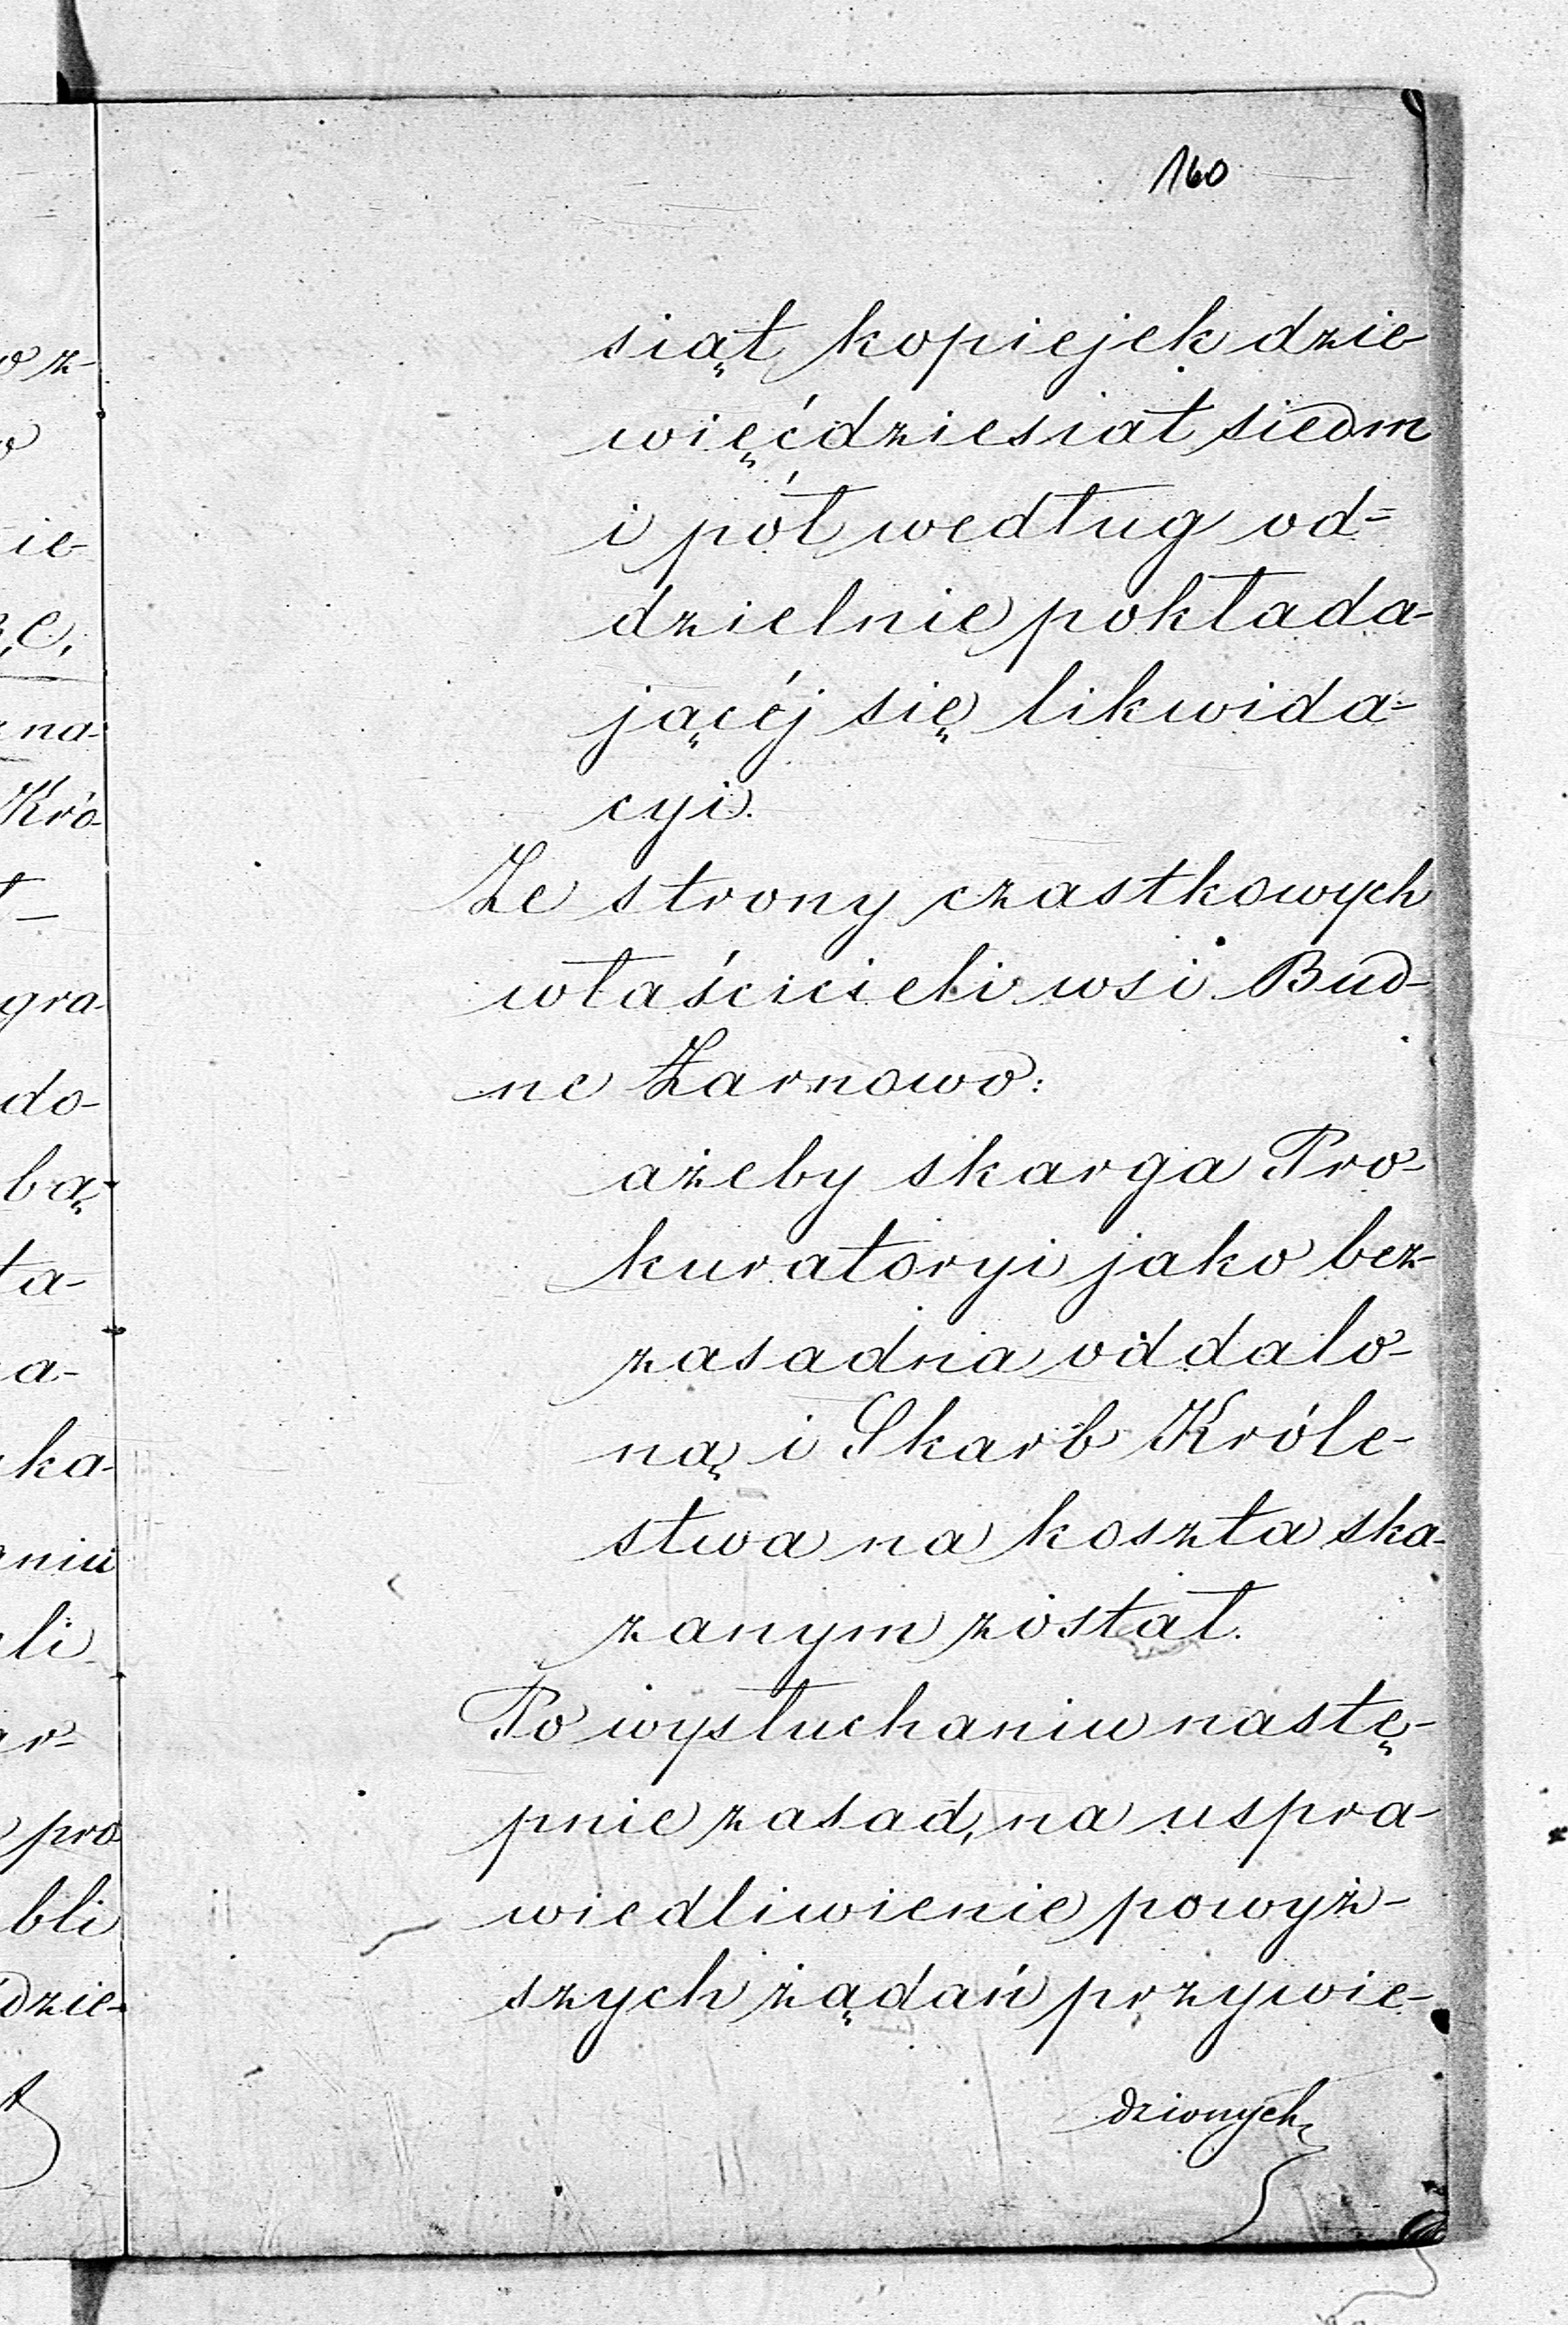 160
siąt kopiejek dzie
więćdziesiat siedm
i pół według od=
dzielnie pokłada-
jącéj się likwida=
cyi.
Ze strony czastkowych
właścicieli wsi Bud-
ne Żarnowo:
ażeby skarga Pro-
kuratoryi jako bez-
zasadna oddalo-
ną i Skarb Króle-
stwa na koszta ska-
zanym został.
Po wysłuchaniu nastę-
pnie zasad, na uspra-
wiedliwienie powyż-
szych żądań przywie-
dzionych